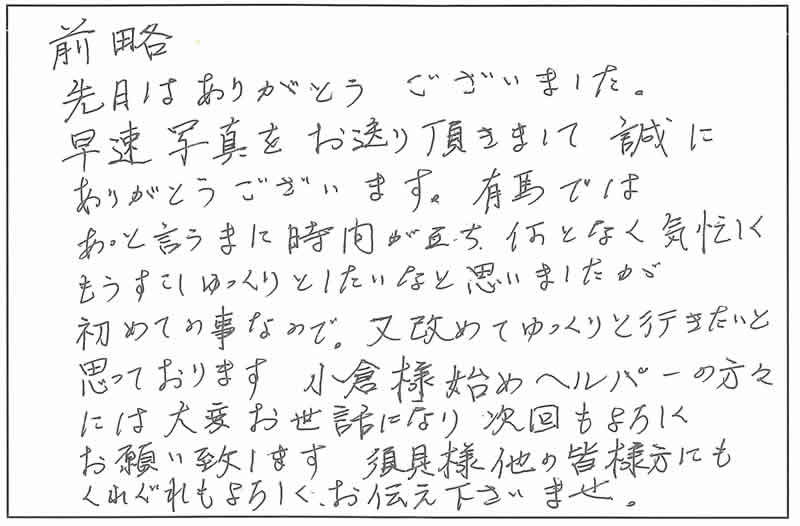 前略
先月はありがとうございました。
早速写真をお送り頂きまして誠に
ありがとうございます。有馬では
あっと言うまに時間が立ち、何となく気忙しく
もうすこしゆっくりとしたいなと思いましたが
初めての事なので。又改めてゆっくりと行きたいと
思っております 小倉様始めヘルパーの方々
には大変お世話になり 次回もよろしく
お願い致します 須見様他の皆様方にも
くれぐれもよろしく、お伝え下ざいませ。